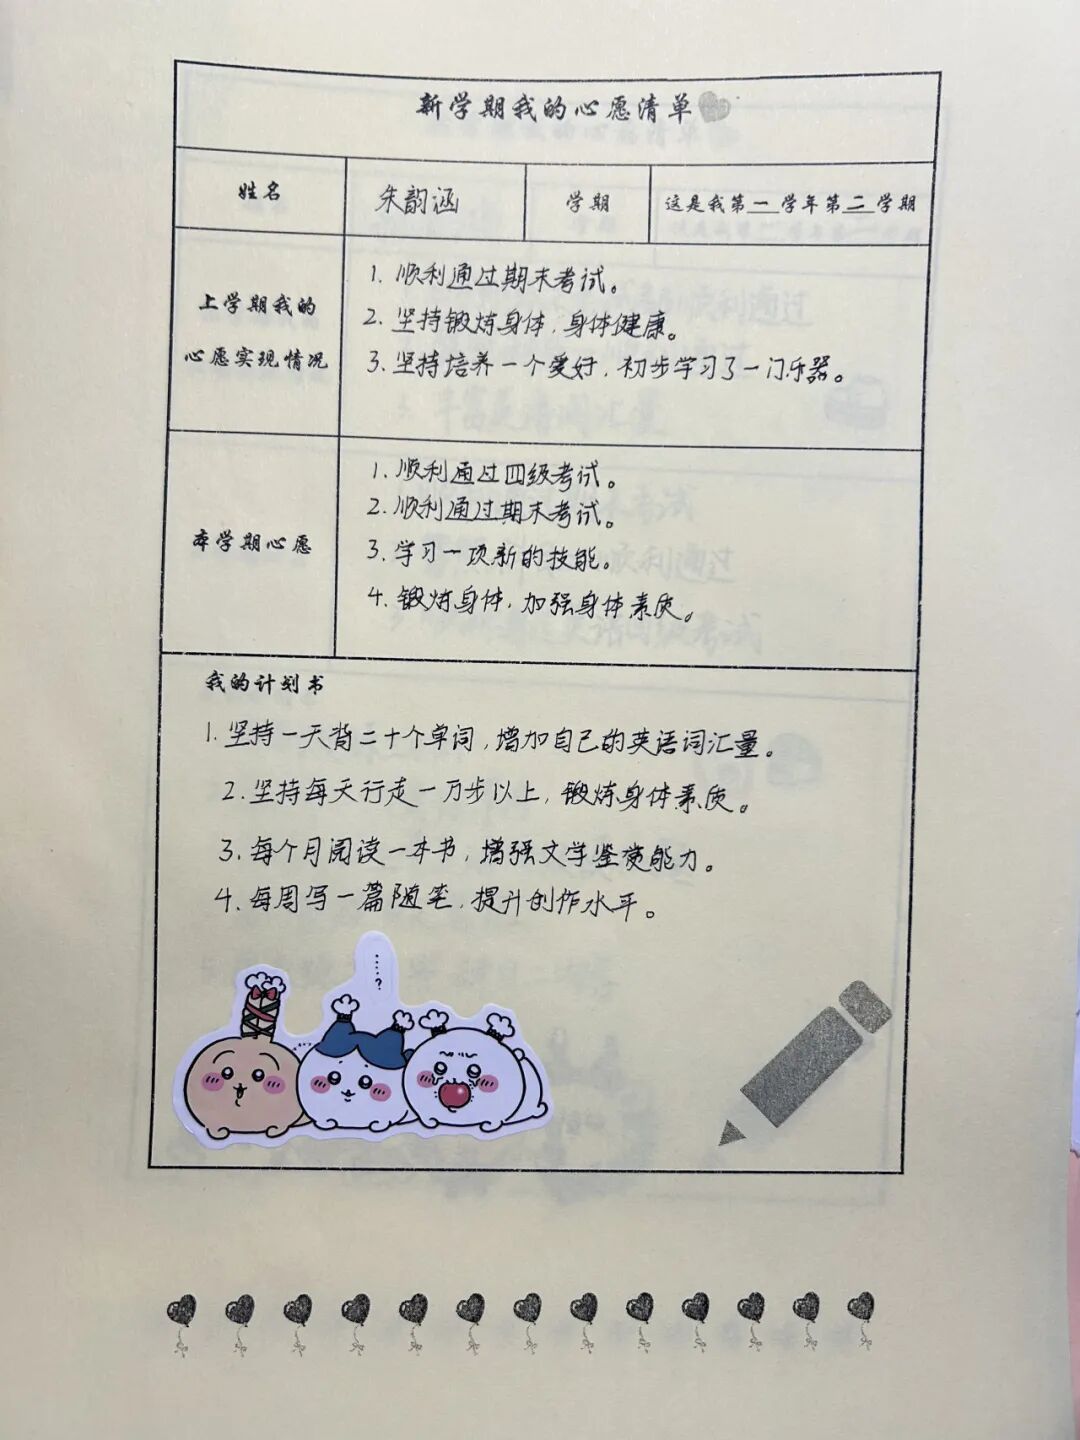 新学期我的心愿清单
姓名 朱韵涵 学期 这是我第一学年第二学期
上学期我的
心愿实现情况
1. 顺利通过期末考试。
2. 坚持锻炼身体,身体健康。
3. 坚持培养一个爱好,初步学习了一门乐器。
本学期心愿
1. 顺利通过四级考试。
2. 顺利通过期末考试。
3. 学习一项新的技能。
4. 锻炼身体,加强身体素质。
我的计划书
1. 坚持一天背二十个单词,增加自己的英语词汇量。
2. 坚持每天行走一万步以上,锻炼身体素质。
3. 每个月阅读一本书,增强文学鉴赏能力。
4. 每周写一篇随笔,提升创作水平。
……?